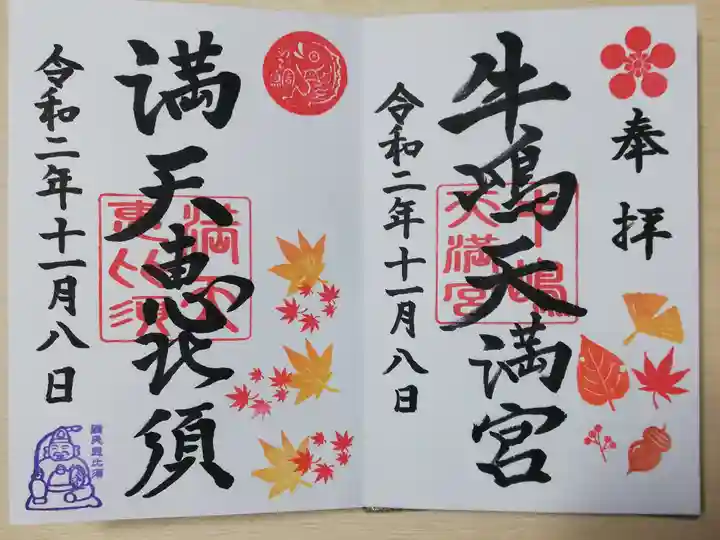 奉拝
牛嶋天満宮
牛嶋
天満宮
令和二年十一月八日
満天恵比須
満天
恵比須
令和二年十一月八日
満天恵比須